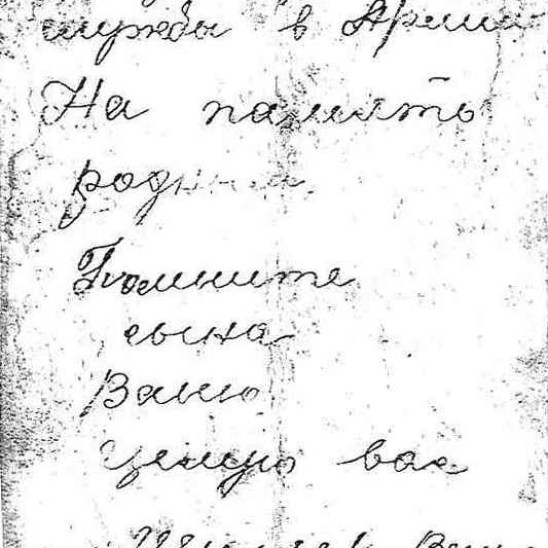 службы в Армии
На память
родным
Помните
сына
Ваню
Целую вас